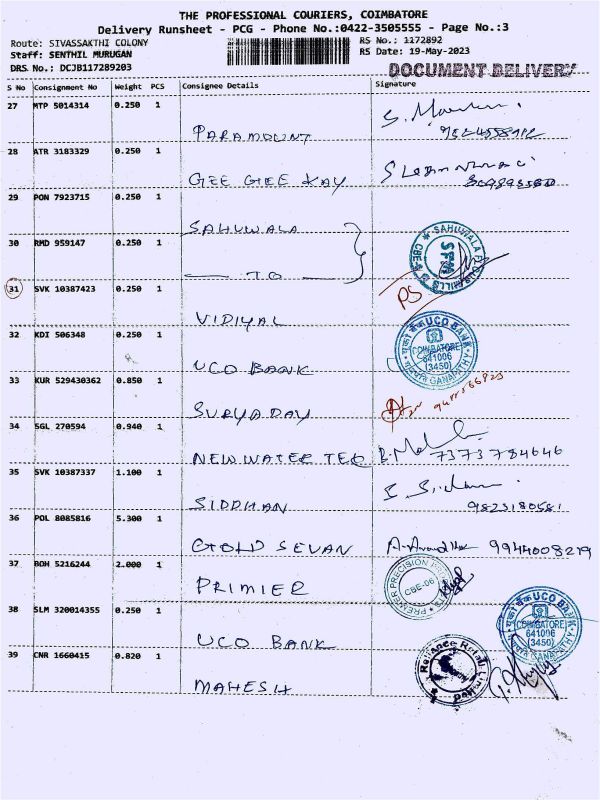 THE PROFESSIONAL COURIERS, COIMBATORE
Delivery Runsheet - PCG - Phone No.:0422-3505555 - Page No.:3
Route: SIVASSAKTHI COLONY
Staff: SENTHIL MURUGAN
DRS No.: DCJB117289203
RS No.: 1172892
RS Date: 19-May-2023
DOCUMENT DELIVERY
S No Consignment No Weight PCS Consignee Details Signature
27 MTP 5014314 0.250 1
PARAMOUNT
28 ATR 3183329 0.250 1
GEE GEE KAY
29 PON 7923715 0.250 1
SAHUWALA
30 RMD 959147 0.250 1
TO
SAHUWALA
SPM
CBE-6
31 SVK 10387423 0.250 1
VIDIYAL
PS
32 KDI 506348 0.250 1
UCO BANK
UCO BANK
COIMBATORE
641006
(3450)
GANAPATHY
33 KUR 529430362 0.850 1
SURYADAY
34 SGL 270594 0.940 1
NEW WATER TEC
7373784646
35 SVK 10387337 1.100 1
SIDDHAN
9823180581
36 POL 8085816 5.300 1
GOLD SEVAN
9944008219
37 BOH 5216244 2.000 1
PRIMIER
PREMIER PRECISION
CBE-06
38 SLM 320014355 0.250 1
UCO BANK
UCO BANK
COIMBATORE
641006
(3450)
39 CNR 1660415 0.820 1
MAHESH
Reliance Retail Limited